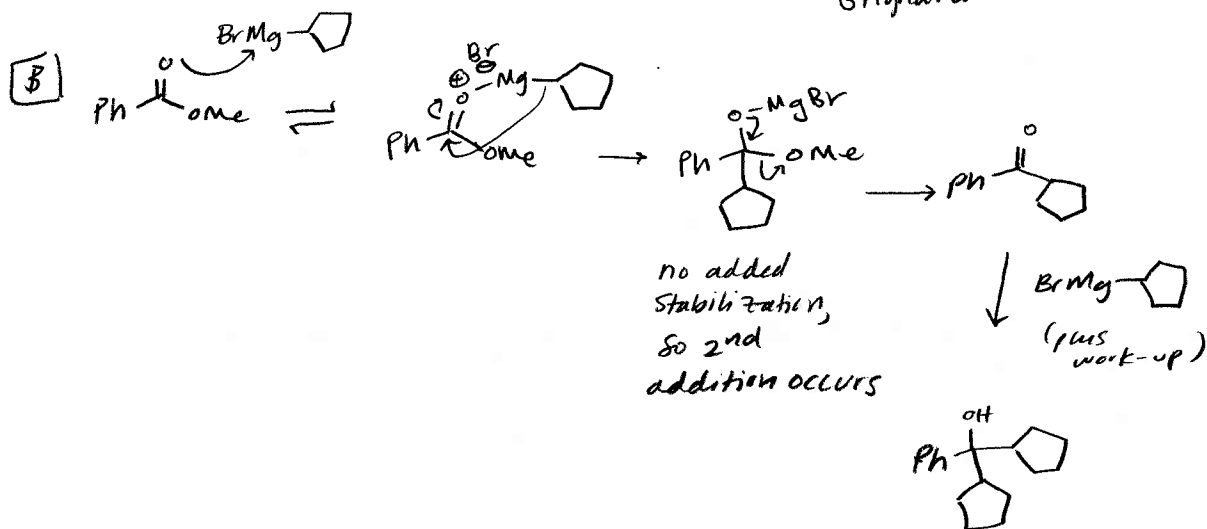 Grignard
B
O
BrMg
Ph
OMe
Br
⊕
⊖
O
Mg
Ph
OMe
O-MgBr
Ph
OMe
O
Ph
no added
stabilization,
so 2nd
addition occurs
BrMg
(plus
work-up)
OH
Ph